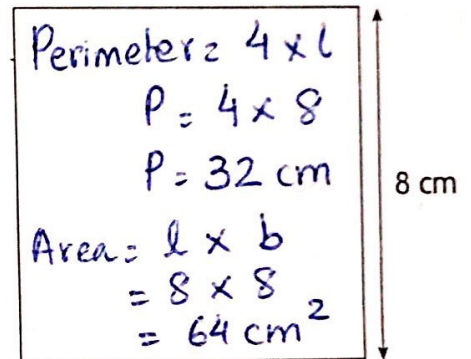 Perimeter = 4 × l
P = 4 × 8
P = 32 cm
8 cm
Area = l × b
= 8 × 8
= 64 cm²